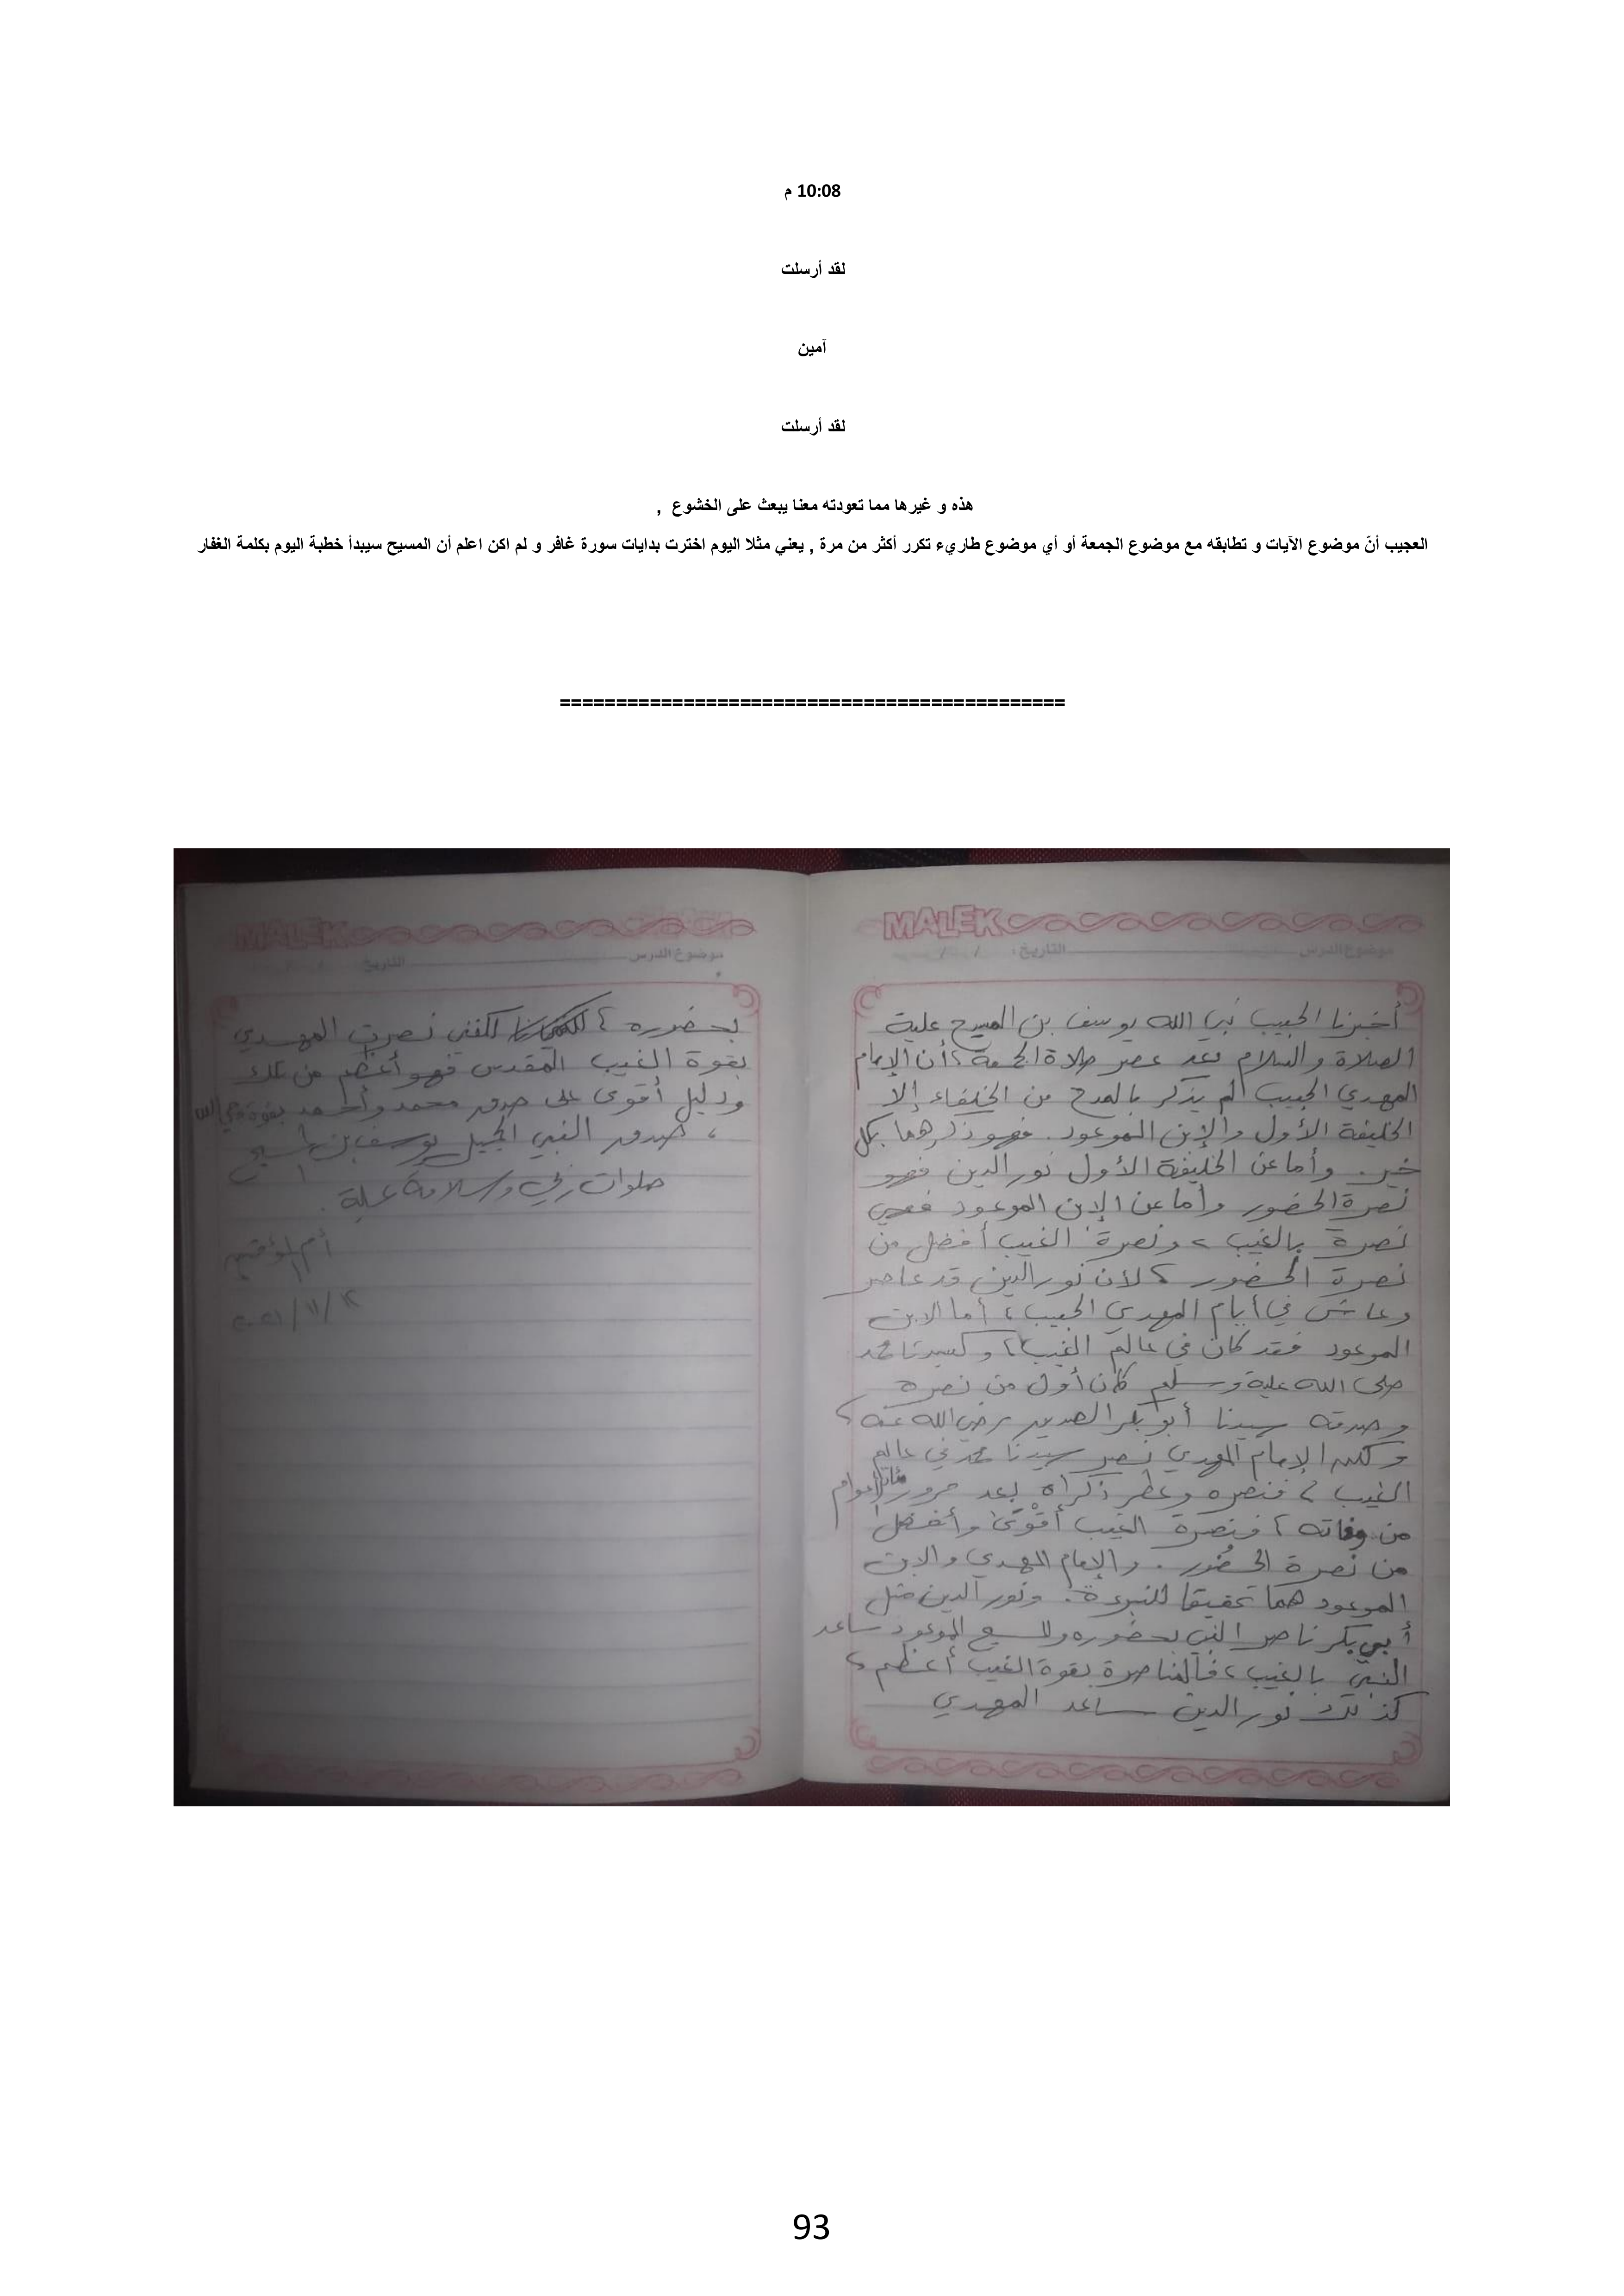 10:08 م
لقد أرسلت
آمين
لقد أرسلت
هذه و غيرها مما تعودته معنا يبعث على الخشوع ,
العجيب أنّ موضوع الآيات و تطابقه مع موضوع الجمعة أو أي موضوع طاريء تكرر أكثر من مرة , يعني مثلا اليوم اخترت بدايات سورة غافر و لم اكن اعلم أن المسيح سيبدأ خطبة اليوم بكلمة الغفار
=============================================
MALEK
موضوع الدرس التاريخ: / /
أخبرنا الحبيب نبي الله يوسف بن المسيح علية
الصلاة والسلام بعد عصر صلاة الجمعة، أن الإمام
المهدي الحبيب لم يذكر بالمدح من الخلفاء إلا
الخليفة الأول والإبن الموعود. فهو ذكرهما بكل
خير. وأما عن الخليفة الأول نور الدين فهو
نصرة الحضور وأما عن الإبن الموعود فهي
نصرة بالغيب، ونصرة الغيب أفضل من
نصرة الحضور، لأن نور الدين قد عاصر
وعاش في أيام المهدي الحبيب، أما الابن
الموعود فقد كان في عالم الغيب، وكسيدنا محمد
صلى الله علية وسلم كان أول من نصره
وصدقه سيدنا أبو بكر الصديق رضي الله عنه،
ولكن الإمام المهدي نصر سيدنا محمد في عالم
الغيب، فنصره وعطر ذكراه بعد مرور مئات الأعوام
من وفاته، فنصرة الغيب أقوى وأفضل
من نصرة الحضور. والإمام المهدي والابن
الموعود هما تحقيقا للنبوءة. ونور الدين مثل
أبي بكر ناصر النبي بحضوره والمسيح الموعود ساعد
النبي بالغيب، فالمناصرة بقوة الغيب أعظم،
كذلك نور الدين ساعد المهدي
MALEK
موضوع الدرس التاريخ
بحضوره، لكنني نصرت المهدي
بقوة الغيب المقدس فهو أعظم من تلك
ودليل أقوى على صدق محمد وأحمد بقوة وحي الله
، صدق النبي الجميل يوسف بن المسيح
صلوات ربي وسلامة علية.
أم المؤمنين
١٢/١١/٢٠٢١
93